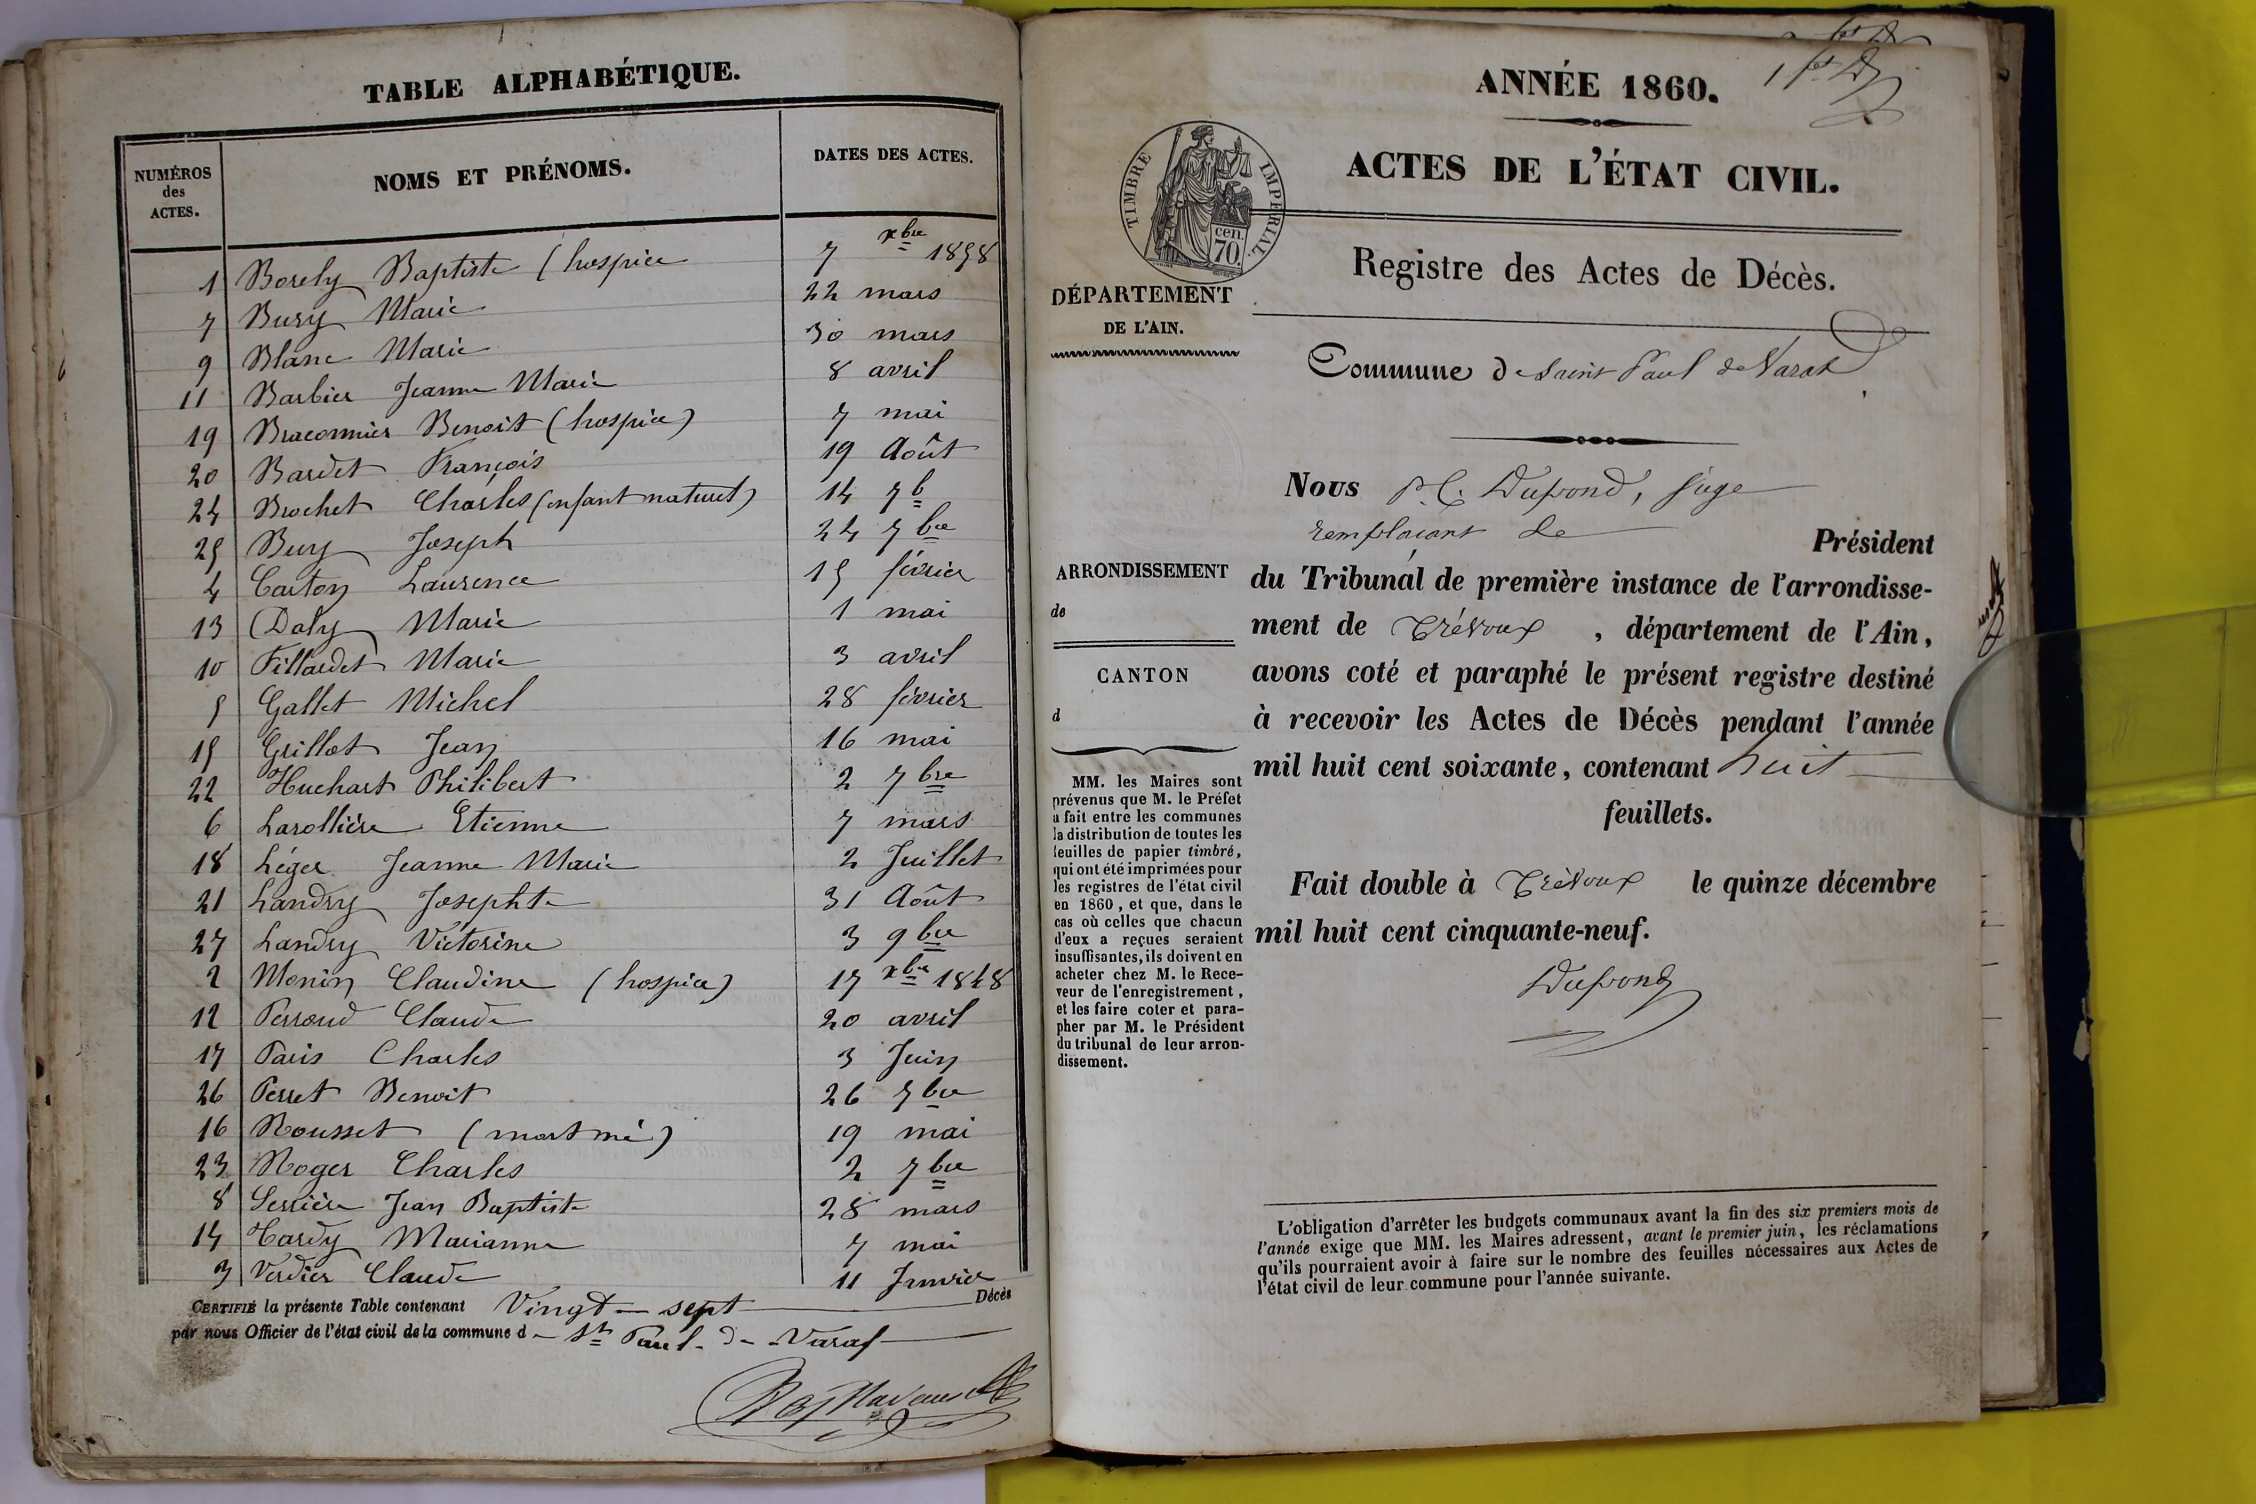 TABLE ALPHABÉTIQUE.
NUMÉROS des ACTES. NOMS ET PRÉNOMS. DATES DES ACTES.
1 Borely Baptiste (hospice 7 xbre 1858
7 Bury Marie 22 mars
9 Blanc Marie 30 mars
11 Barbier Jeanne Marie 8 avril
19 Braconnier Benoit (hospice) 7 mai
20 Bardet François 19 Août
24 Brochet Charles (enfant naturel) 14 7b
25 Bury Joseph 24 7bre
4 Carton Laurence 15 février
13 Daly Marie 1 mai
10 Fillardet Marie 3 avril
5 Gallet Michel 28 février
15 Grillot Jean 16 mai
22 Huchart Philibert 2 7bre
6 Larollière Etienne 7 mars
18 Léger Jeanne Marie 2 Juillet
21 Landry Josephte 31 Août
27 Landry Victorine 3 9bre
2 Monin Claudine (hospice) 17 xbre 1848
12 Perroud Claude 20 avril
17 Paris Charles 3 Juin
26 Perret Benoit 26 7bre
16 Rousset (mort né) 19 mai
23 Roger Charles 2 7bre
8 Serrière Jean Baptiste 28 mars
14 Tardy Marianne 7 mai
3 Verdier Claude 11 Janvier
CERTIFIÉ la présente Table contenant Vingt-sept Décès
par nous Officier de l'état civil de la commune d e St Paul de Varax
ANNÉE 1860.
ACTES DE L'ÉTAT CIVIL.
TIMBRE IMPÉRIAL.
cen.
70.
Registre des Actes de Décès.
DÉPARTEMENT
DE L'AIN.
Commune de Saint Paul de Varax
Nous P. C. Dupond, juge
remplaçant le Président
ARRONDISSEMENT
de
CANTON
d
du Tribunal de première instance de l'arrondisse-
ment de Trévoux , département de l'Ain,
avons coté et paraphé le présent registre destiné
à recevoir les Actes de Décès pendant l'année
mil huit cent soixante, contenant huit
feuillets.
MM. les Maires sont
prévenus que M. le Préfet
a fait entre les communes
la distribution de toutes les
feuilles de papier timbré,
qui ont été imprimées pour
les registres de l'état civil
en 1860, et que, dans le
cas où celles que chacun
d'eux a reçues seraient
insuffisantes, ils doivent en
acheter chez M. le Rece-
veur de l'enregistrement,
et les faire coter et para-
pher par M. le Président
du tribunal de leur arron-
dissement.
Fait double à Trévoux le quinze décembre
mil huit cent cinquante-neuf.
Dupond
L'obligation d'arrêter les budgets communaux avant la fin des six premiers mois de
l'année exige que MM. les Maires adressent, avant le premier juin, les réclamations
qu'ils pourraient avoir à faire sur le nombre des feuilles nécessaires aux Actes de
l'état civil de leur commune pour l'année suivante.